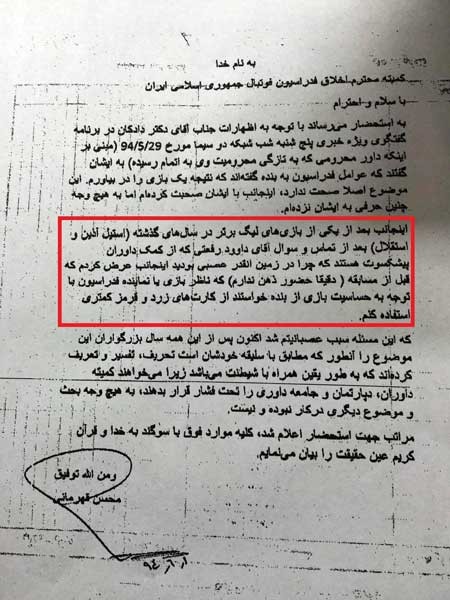 به نام خدا
کمیته محترم اخلاق فدراسیون فوتبال جمهوری اسلامی ایران
با سلام و احترام
به استحضار می‌رساند با توجه به اظهارات جناب آقای دکتر دادکان در برنامه
گفتگوی ویژه خبری پنج شنبه شب شبکه دو سیما مورخ 94/5/29 (مبنی بر
اینکه داور محرومی که به تازگی محرومیت وی به اتمام رسیده) به ایشان
گفتند که عوامل فدراسیون به بنده گفته‌اند که نتیجه یک بازی را در بیاورم. این
موضوع اصلا صحت ندارد، اینجانب با ایشان صحبت کرده‌ام اما به هیچ وجه
چنین حرفی به ایشان نزده‌ام.
اینجانب بعد از یکی از بازی‌های لیگ برتر در سال‌های گذشته (استیل آذین و
استقلال) بعد از تماس و سوال آقای داوود رفعتی که از کمک داوران
پیشکسوت هستند که چرا در زمین انقدر عصبی بودید اینجانب عرض کردم که
قبل از مسابقه ( دقیقا حضور ذهن ندارم) که ناظر بازی یا نماینده فدراسیون با
توجه به حساسیت بازی از بنده خواستند از کارت‌های زرد و قرمز کمتری
استفاده کنم.
که این مسئله سبب عصبانیتم شد اکنون پس از این همه سال بزرگواران این
موضوع را آنطور که مطابق با سلیقه خودشان است تحریف، تفسیر و تعریف
کرده‌اند که به طور یقین همراه با شیطنت می‌باشد زیرا می‌خواهند کمیته
داوران، دپارتمان و جامعه داوری را تحت فشار قرار بدهند، به هیچ وجه بحث
و موضوع دیگری درکار نبوده و نیست.
مراتب جهت استحضار اعلام شد، کلیه موارد فوق با سوگند به خدا و قرآن
کریم عین حقیقت را بیان می‌نمایم.
ومن الله توفیق
محسن قهرمانی